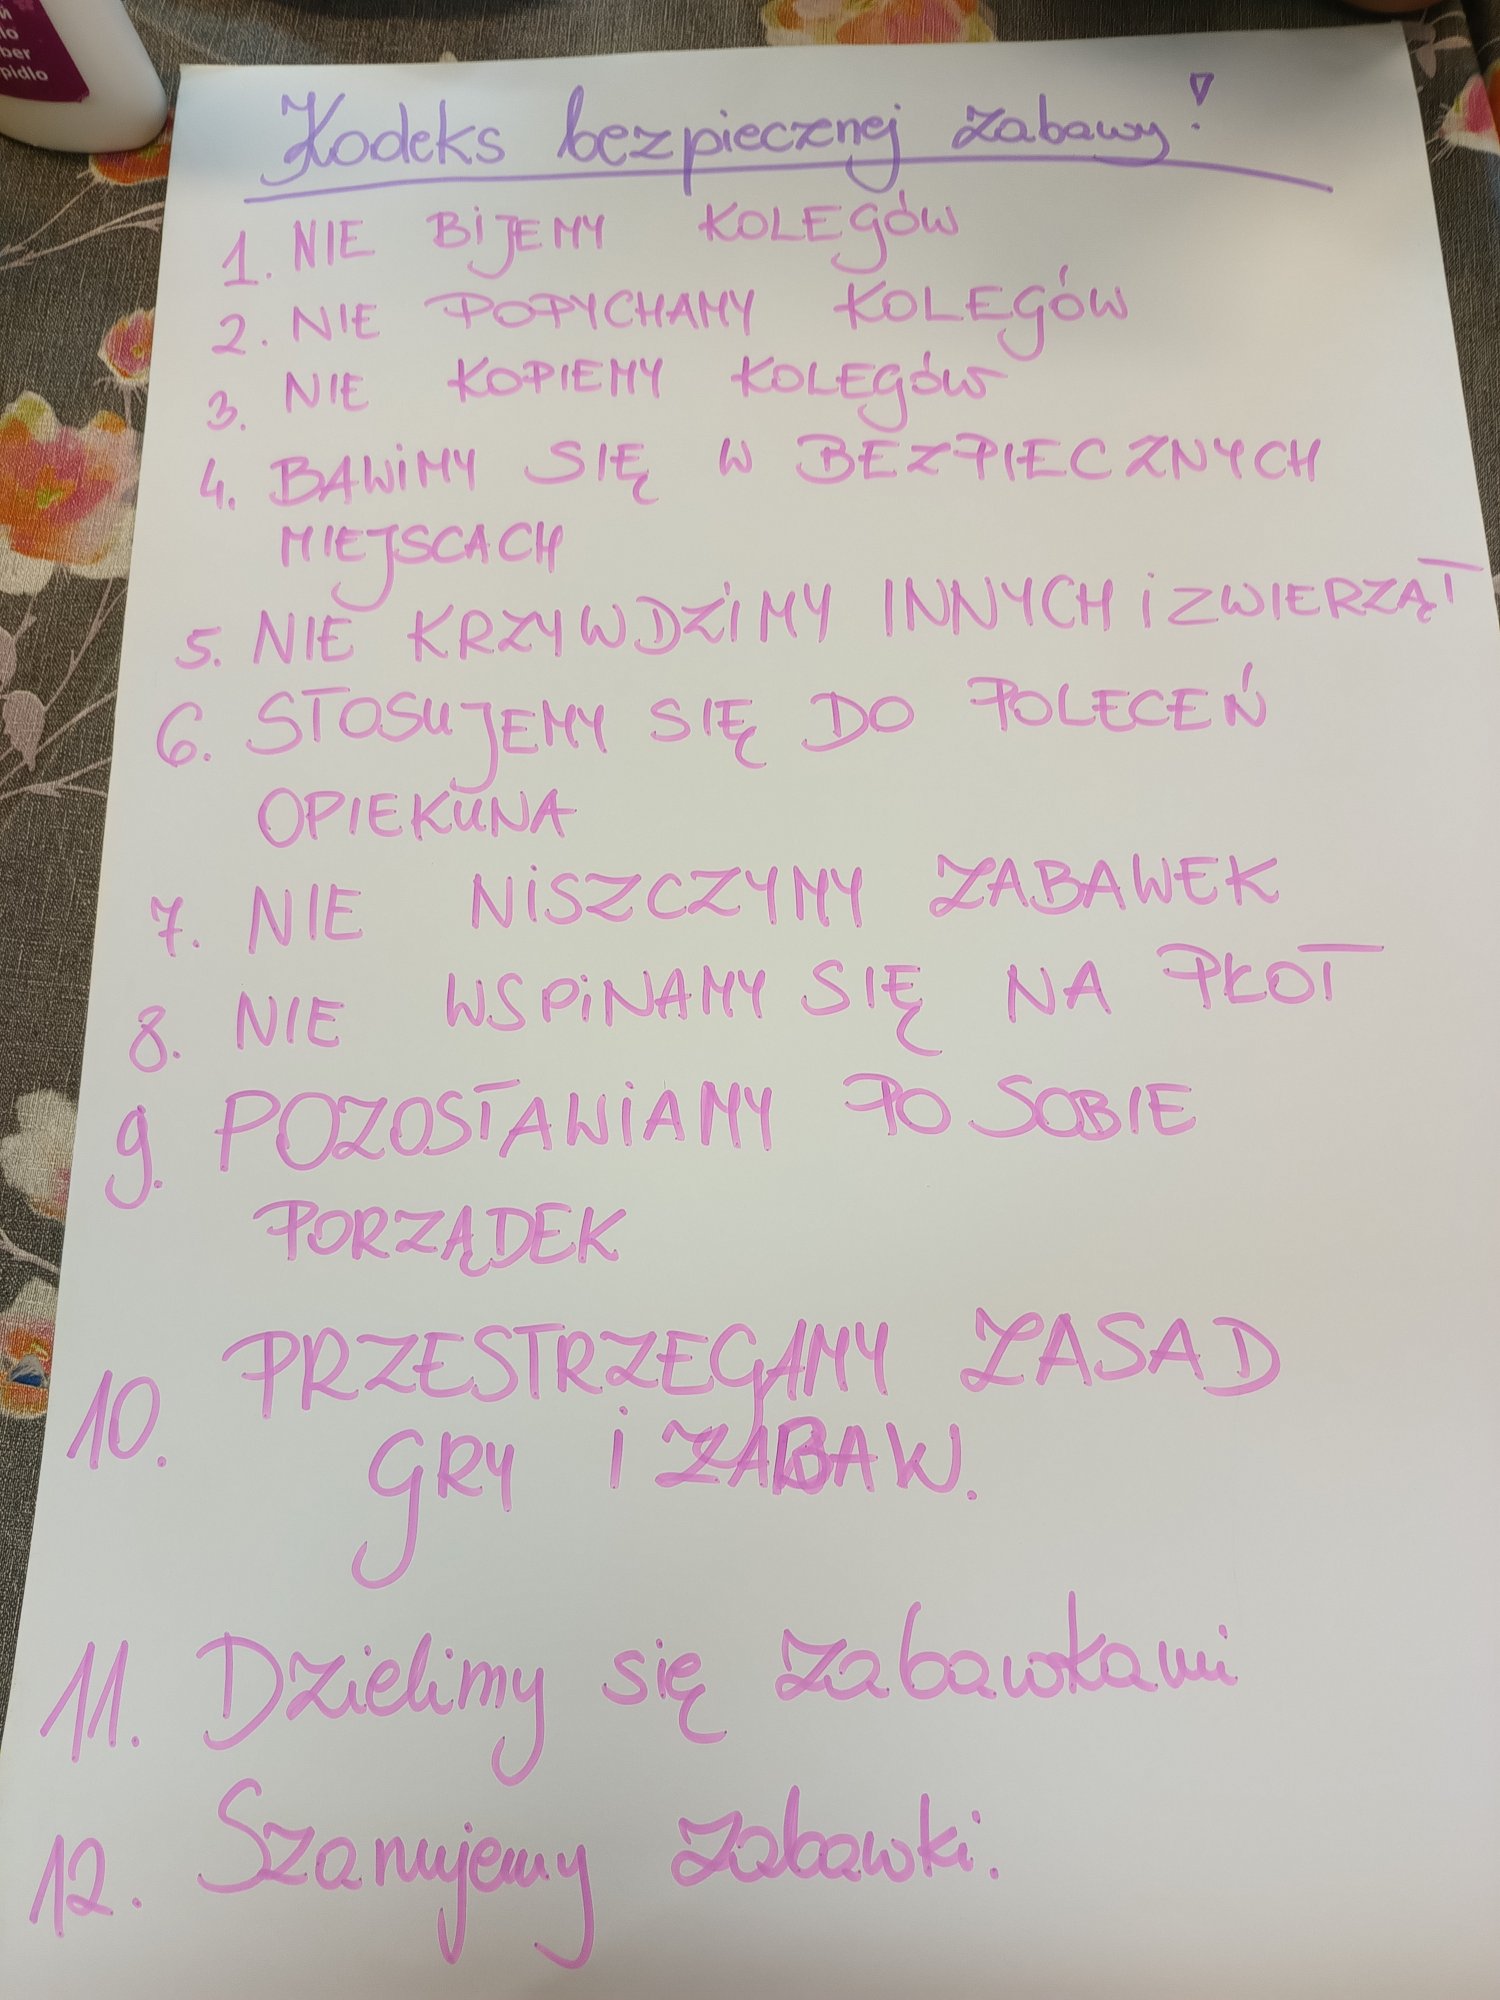 lo
ber
pidlo
Kodeks bezpiecznej zabawy!
1. NIE BIJEMY KOLEGÓW
2. NIE POPYCHAMY KOLEGÓW
3. NIE KOPIEMY KOLEGÓW
4. BAWIMY SIĘ W BEZPIECZNYCH
MIEJSCACH
5. NIE KRZYWDZIMY INNYCH i ZWIERZĄT
6. STOSUJEMY SIĘ DO POLECEŃ
OPIEKUNA
7. NIE NISZCZYMY ZABAWEK
8. NIE WSPINAMY SIĘ NA PŁOT
9. POZOSTAWIAMY PO SOBIE
PORZĄDEK
10. PRZESTRZEGAMY ZASAD
GRY i ZABAW.
11. Dzielimy się zabawkami
12. Szanujemy zabawki.